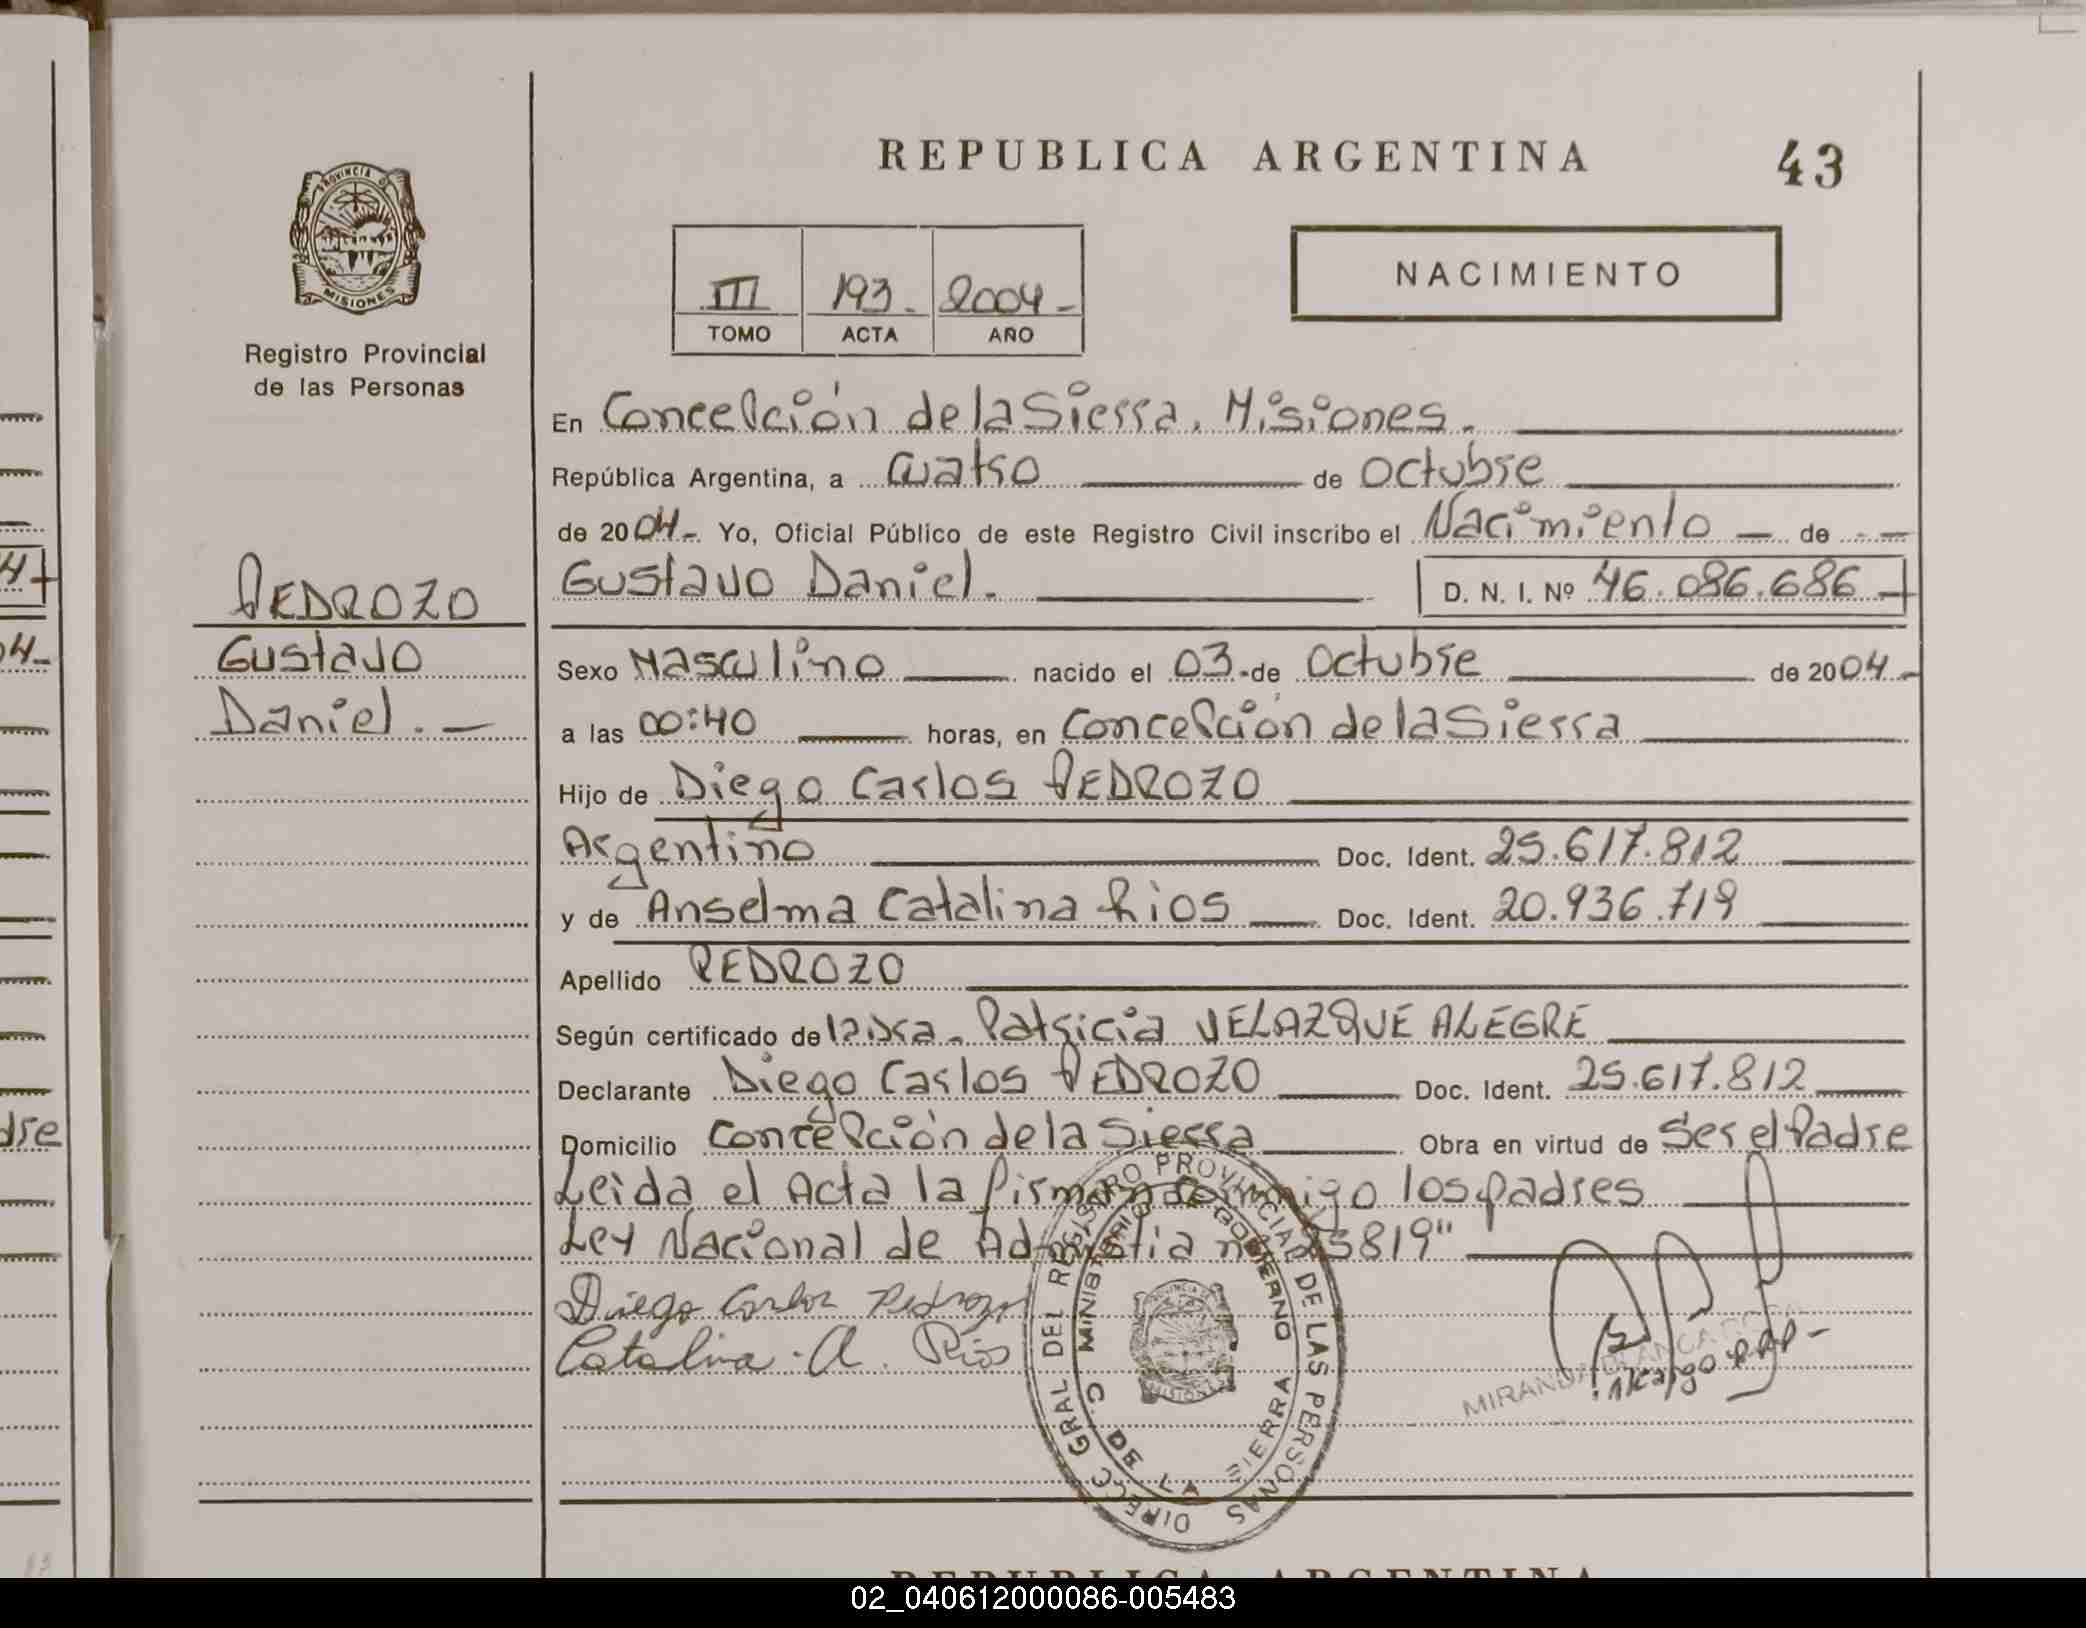 REPUBLICA ARGENTINA
43
PROVINCIA DE
MISIONES
Registro Provincial
de las Personas
III 193- 2004-
TOMO ACTA AÑO
NACIMIENTO
En Concepción de la Sierra, Misiones.
República Argentina, a cuatro de Octubre
de 2004- Yo, Oficial Público de este Registro Civil inscribo el Nacimiento de
Gustavo Daniel. D. N. I. Nº 46.086.686
PEDROZO
Gustavo
Daniel.
Sexo Masculino nacido el 03 de Octubre de 2004-
a las 00:40 horas, en Concepción de la Sierra
Hijo de Diego Carlos PEDROZO
Argentino Doc. Ident. 25.617.812
y de Anselma Catalina Rios Doc. Ident. 20.936.719
Apellido PEDROZO
Según certificado de la Dra. Patricia VELAZQUE ALEGRE
Declarante Diego Carlos PEDROZO Doc. Ident. 25.617.812
Domicilio Concepción de la Sierra Obra en virtud de Ser el Padre
Leida el Acta la firman conmigo los padres
Ley Nacional de Admistia nº 25819"
Diego Carlos Pedrozo
Catalina A. Rios
DIRECC GRAL DEL REGISTRO PROVINCIAL DE LAS PERSONAS
MINISTERIO DE GOBIERNO
C. DE LA SIERRA
MIRANDA BLANCA
REPUBLICA ARGENTINA
dre
02_040612000086-005483